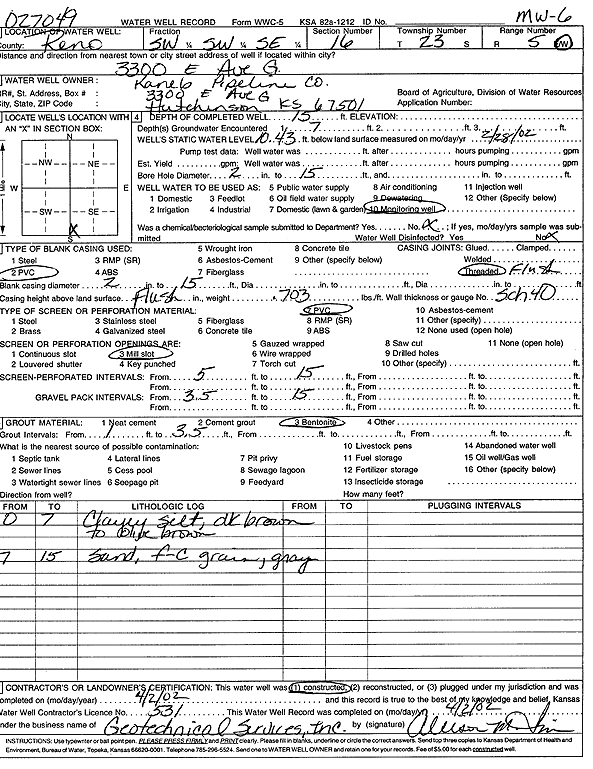 027049 WATER WELL RECORD Form WWC-5 KSA 82a-1212 ID No. MW-6
LOCATION OF WATER WELL: Fraction Section Number Township Number Range Number
County: Reno SW ¼ SW ¼ SE ¼ 16 T 23 S R 5 E/W
Distance and direction from nearest town or city street address of well if located within city?
3300 E Ave G
WATER WELL OWNER: Kaneb Pipeline Co.
RR#, St. Address, Box # : 3300 E Ave G Board of Agriculture, Division of Water Resources
City, State, ZIP Code : Hutchinson KS 67501 Application Number:
LOCATE WELL'S LOCATION WITH 4 DEPTH OF COMPLETED WELL 15 ft. ELEVATION:
AN "X" IN SECTION BOX: Depth(s) Groundwater Encountered 1. 7 ft. 2. ft. 3. ft.
N WELL'S STATIC WATER LEVEL 10.43 ft. below land surface measured on mo/day/yr 2/28/02
Pump test data: Well water was ft. after hours pumping gpm
NW NE Est. Yield gpm: Well water was ft. after hours pumping gpm
Bore Hole Diameter 2 in. to 15 ft., and in. to ft.
W E WELL WATER TO BE USED AS: 5 Public water supply 8 Air conditioning 11 Injection well
1 Mile 1 Domestic 3 Feedlot 6 Oil field water supply 9 Dewatering 12 Other (Specify below)
SW SE 2 Irrigation 4 Industrial 7 Domestic (lawn & garden) 10 Monitoring well
X Was a chemical/bacteriological sample submitted to Department? Yes No X ; If yes, mo/day/yrs sample was sub-
S mitted Water Well Disinfected? Yes No X
TYPE OF BLANK CASING USED: 5 Wrought iron 8 Concrete tile CASING JOINTS: Glued Clamped
1 Steel 3 RMP (SR) 6 Asbestos-Cement 9 Other (specify below) Welded
2 PVC 4 ABS 7 Fiberglass Threaded Flush
Blank casing diameter 2 in. to 15 ft., Dia in. to ft., Dia in. to ft.
Casing height above land surface Flush in., weight .703 lbs./ft. Wall thickness or gauge No. Sch. 40
TYPE OF SCREEN OR PERFORATION MATERIAL: 7 PVC 10 Asbestos-cement
1 Steel 3 Stainless steel 5 Fiberglass 8 RMP (SR) 11 Other (specify)
2 Brass 4 Galvanized steel 6 Concrete tile 9 ABS 12 None used (open hole)
SCREEN OR PERFORATION OPENINGS ARE: 5 Gauzed wrapped 8 Saw cut 11 None (open hole)
1 Continuous slot 3 Mill slot 6 Wire wrapped 9 Drilled holes
2 Louvered shutter 4 Key punched 7 Torch cut 10 Other (specify) ft.
SCREEN-PERFORATED INTERVALS: From 5 ft. to 15 ft., From ft. to ft.
From ft. to ft., From ft. to ft.
GRAVEL PACK INTERVALS: From 3.5 ft. to 15 ft., From ft. to ft.
From ft. to ft., From ft. to ft.
GROUT MATERIAL: 1 Neat cement 2 Cement grout 3 Bentonite 4 Other
Grout Intervals: From 1 ft. to 3.5 ft., From ft. to ft., From ft. to ft.
What is the nearest source of possible contamination: 10 Livestock pens 14 Abandoned water well
1 Septic tank 4 Lateral lines 7 Pit privy 11 Fuel storage 15 Oil well/Gas well
2 Sewer lines 5 Cess pool 8 Sewage lagoon 12 Fertilizer storage 16 Other (specify below)
3 Watertight sewer lines 6 Seepage pit 9 Feedyard 13 Insecticide storage
Direction from well? How many feet?
FROM TO LITHOLOGIC LOG FROM TO PLUGGING INTERVALS
0 7 Clayey silt, dk brown
to olive brown
7 15 Sand, f-c grain, gray
CONTRACTOR'S OR LANDOWNER'S CERTIFICATION: This water well was (1) constructed, (2) reconstructed, or (3) plugged under my jurisdiction and was
completed on (mo/day/year) 4/2/02 and this record is true to the best of my knowledge and belief. Kansas
Water Well Contractor's Licence No. 531 This Water Well Record was completed on (mo/day/yr)
under the business name of Geotechnical Services, Inc. by (signature)
INSTRUCTIONS: Use typewriter or ball point pen. PLEASE PRESS FIRMLY and PRINT clearly. Please fill in blanks, underline or circle the correct answers. Send top three copies to Kansas Department of Health and
Environment, Bureau of Water, Topeka, Kansas 66620-0001. Telephone 785-296-5524. Send one to WATER WELL OWNER and retain one for your records. Fee of $5.00 for each constructed well.